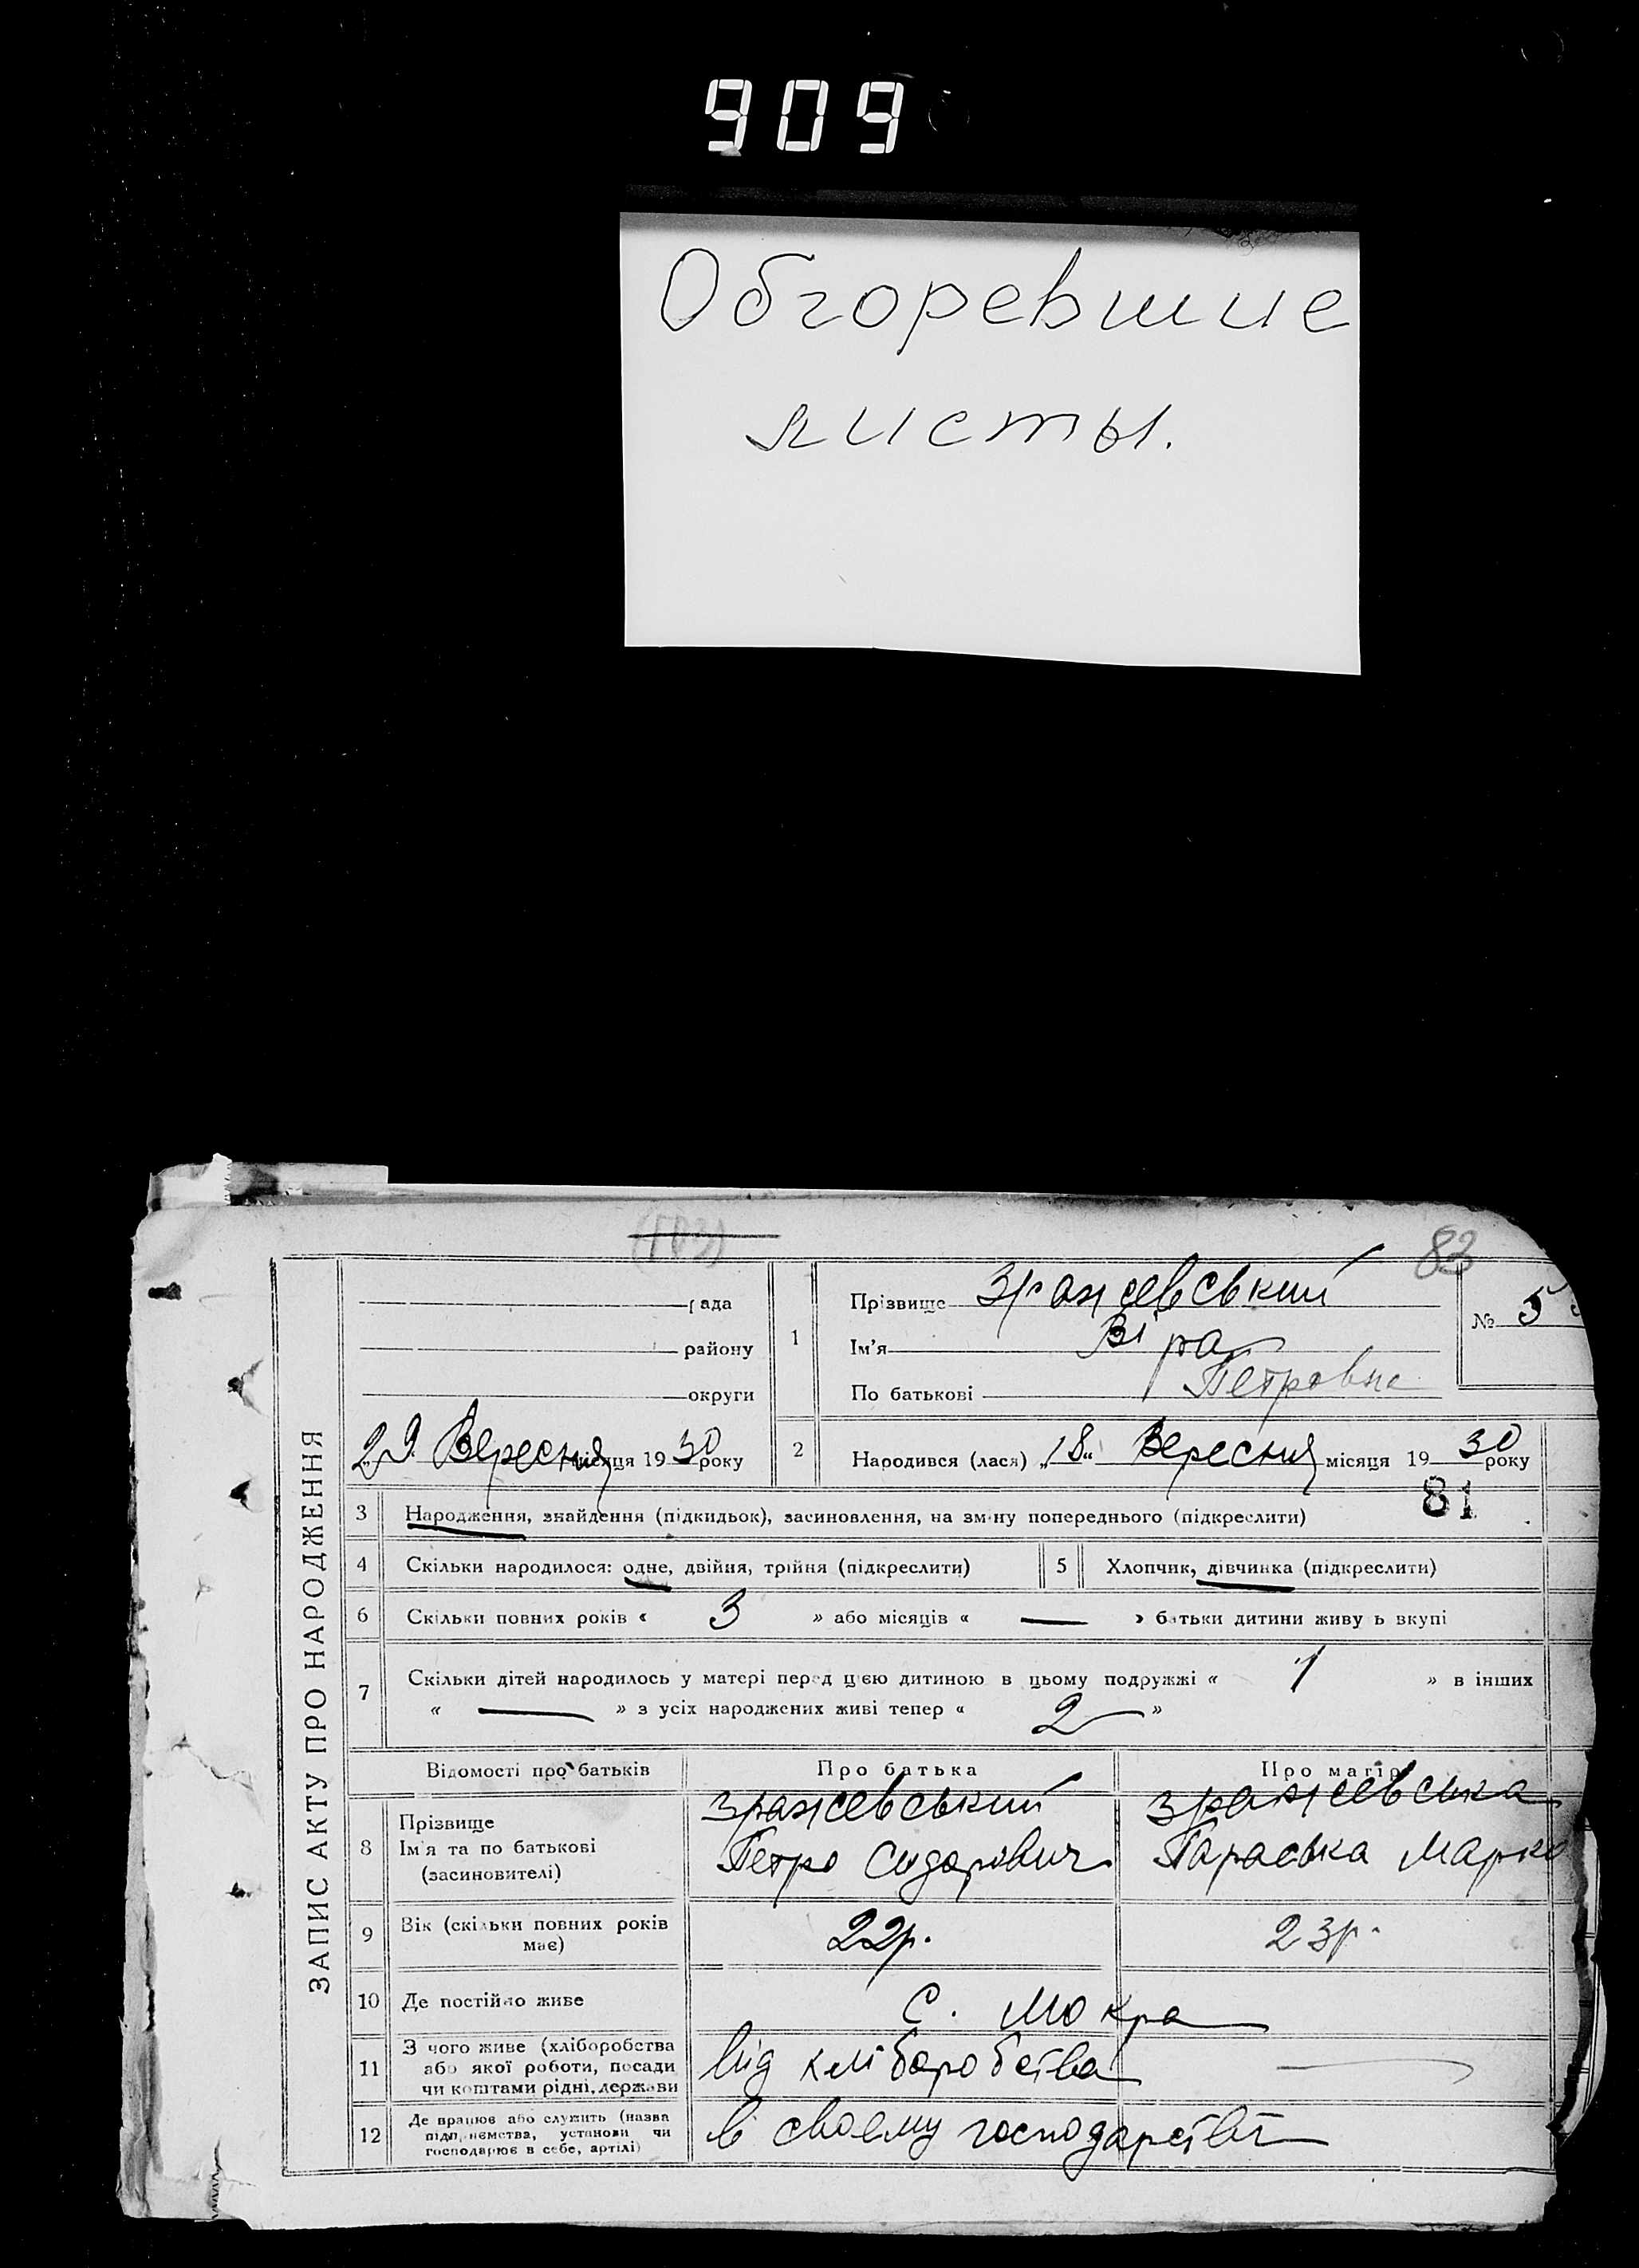 909
Обгоревшие
листы.
(103)
83
ЗАПИС АКТУ ПРО НАРОДЖЕННЯ
рада
району
округи
29. Вересня місяця 1930 року
1
Прізвище Зражевський
Ім'я Віра
По батькові Петровна
№ 5
2
Народився (лася) „18“ Вересня місяця 1930 року
81
3 Народження, знайдення (підкидьок), засиновлення, на зміну попереднього (підкреслити)
4 Скільки народилося: одне, двійня, трійня (підкреслити)
5 Хлопчик, дівчинка (підкреслити)
6 Скільки повних років « 3 » або місяців « — » батьки дитини живуть вкупі
7 Скільки дітей народилось у матері перед цією дитиною в цьому подружжі « 1 » в інших
« — » з усіх народжених живі тепер « 2 »
Відомості про батьків
Про батька
Про матір
8
Прізвище
Ім'я та по батькові
(засиновителі)
Зражевський
Петро Сидорович
Зражевська
Параська Марко
9
Вік (скільки повних років
має)
22р.
23р.
10 Де постійно живе
С. Мокра
11
З чого живе (хліборобства
або якої роботи, посади
чи коштами рідні, держави
Від хліборобства —
12
Де працює або служить (назва
підприємства, установи чи
господарює в себе, артілі)
в своєму господарстві